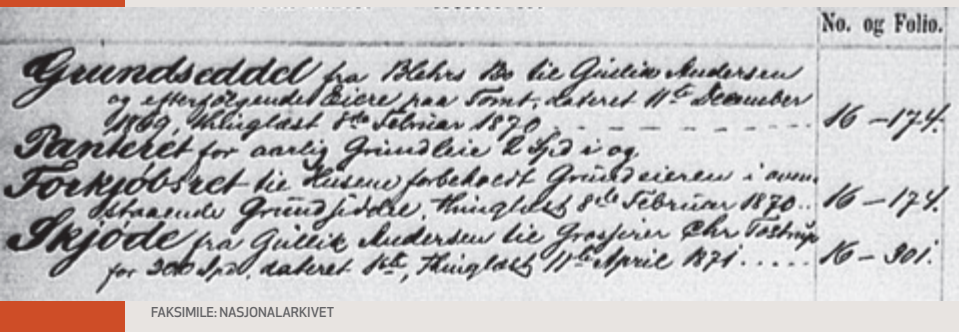 No. og Folio.
Grundseddel fra Blehrs Bo til Gullik Andersen
og efterfølgende Eiere paa Tomt, dateret 11te December
1869, thinglæst 8de Februar 1870 16 – 174.
Panteret for aarlig Grundleie 2 Spd i og
Forkjøbsret til Husene forbeholdt Grundeieren i oven-
staaende Grundseddel, thinglæst 8de Februar 1870.. 16 – 174.
Skjøde fra Gullik Andersen til Grosserer Chr Tostrup
for 300 Spd, dateret thinglæst 11te April 1871..... 16 – 301.
FAKSIMILE: NASJONALARKIVET